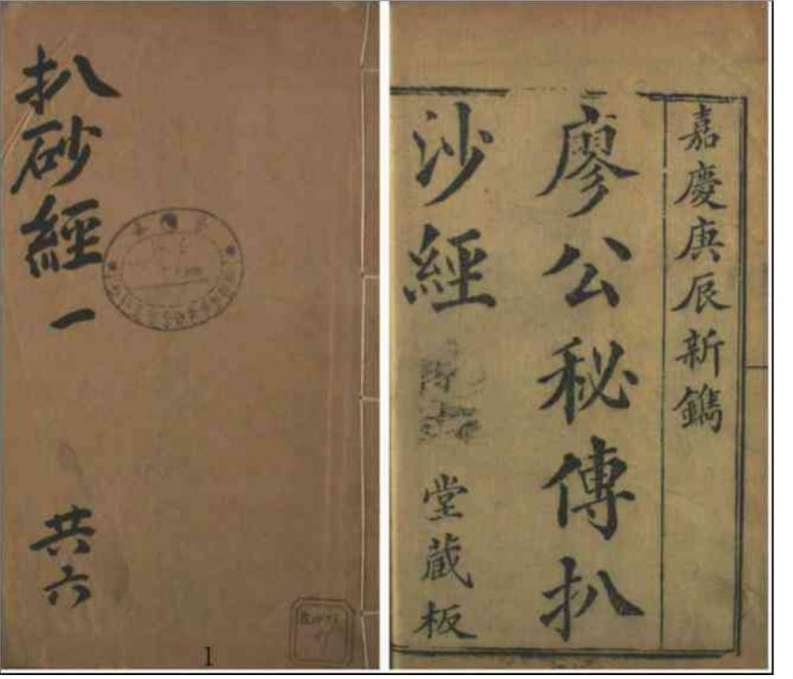 扒砂經一
共六
1
嘉慶庚辰新鐫
廖公秘傳扒
沙經
堂藏板